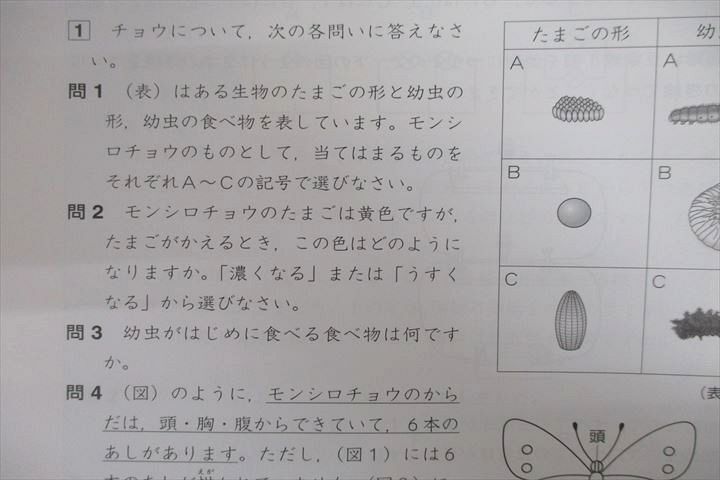 1 チョウについて，次の各問いに答えなさ
い。
問1 （表）はある生物のたまごの形と幼虫の
形，幼虫の食べ物を表しています。モンシ
ロチョウのものとして，当てはまるものを
それぞれA～Cの記号で選びなさい。
問2 モンシロチョウのたまごは黄色ですが，
たまごがかえるとき，この色はどのように
なりますか。「濃くなる」または「うすく
なる」から選びなさい。
問3 幼虫がはじめに食べる食べ物は何です
か。
問4 （図）のように，モンシロチョウのから
だは，頭・胸・腹からできていて，6本の
あしがあります。ただし，（図1）には6
たまごの形 幼
A A
B B
C C
（表
頭